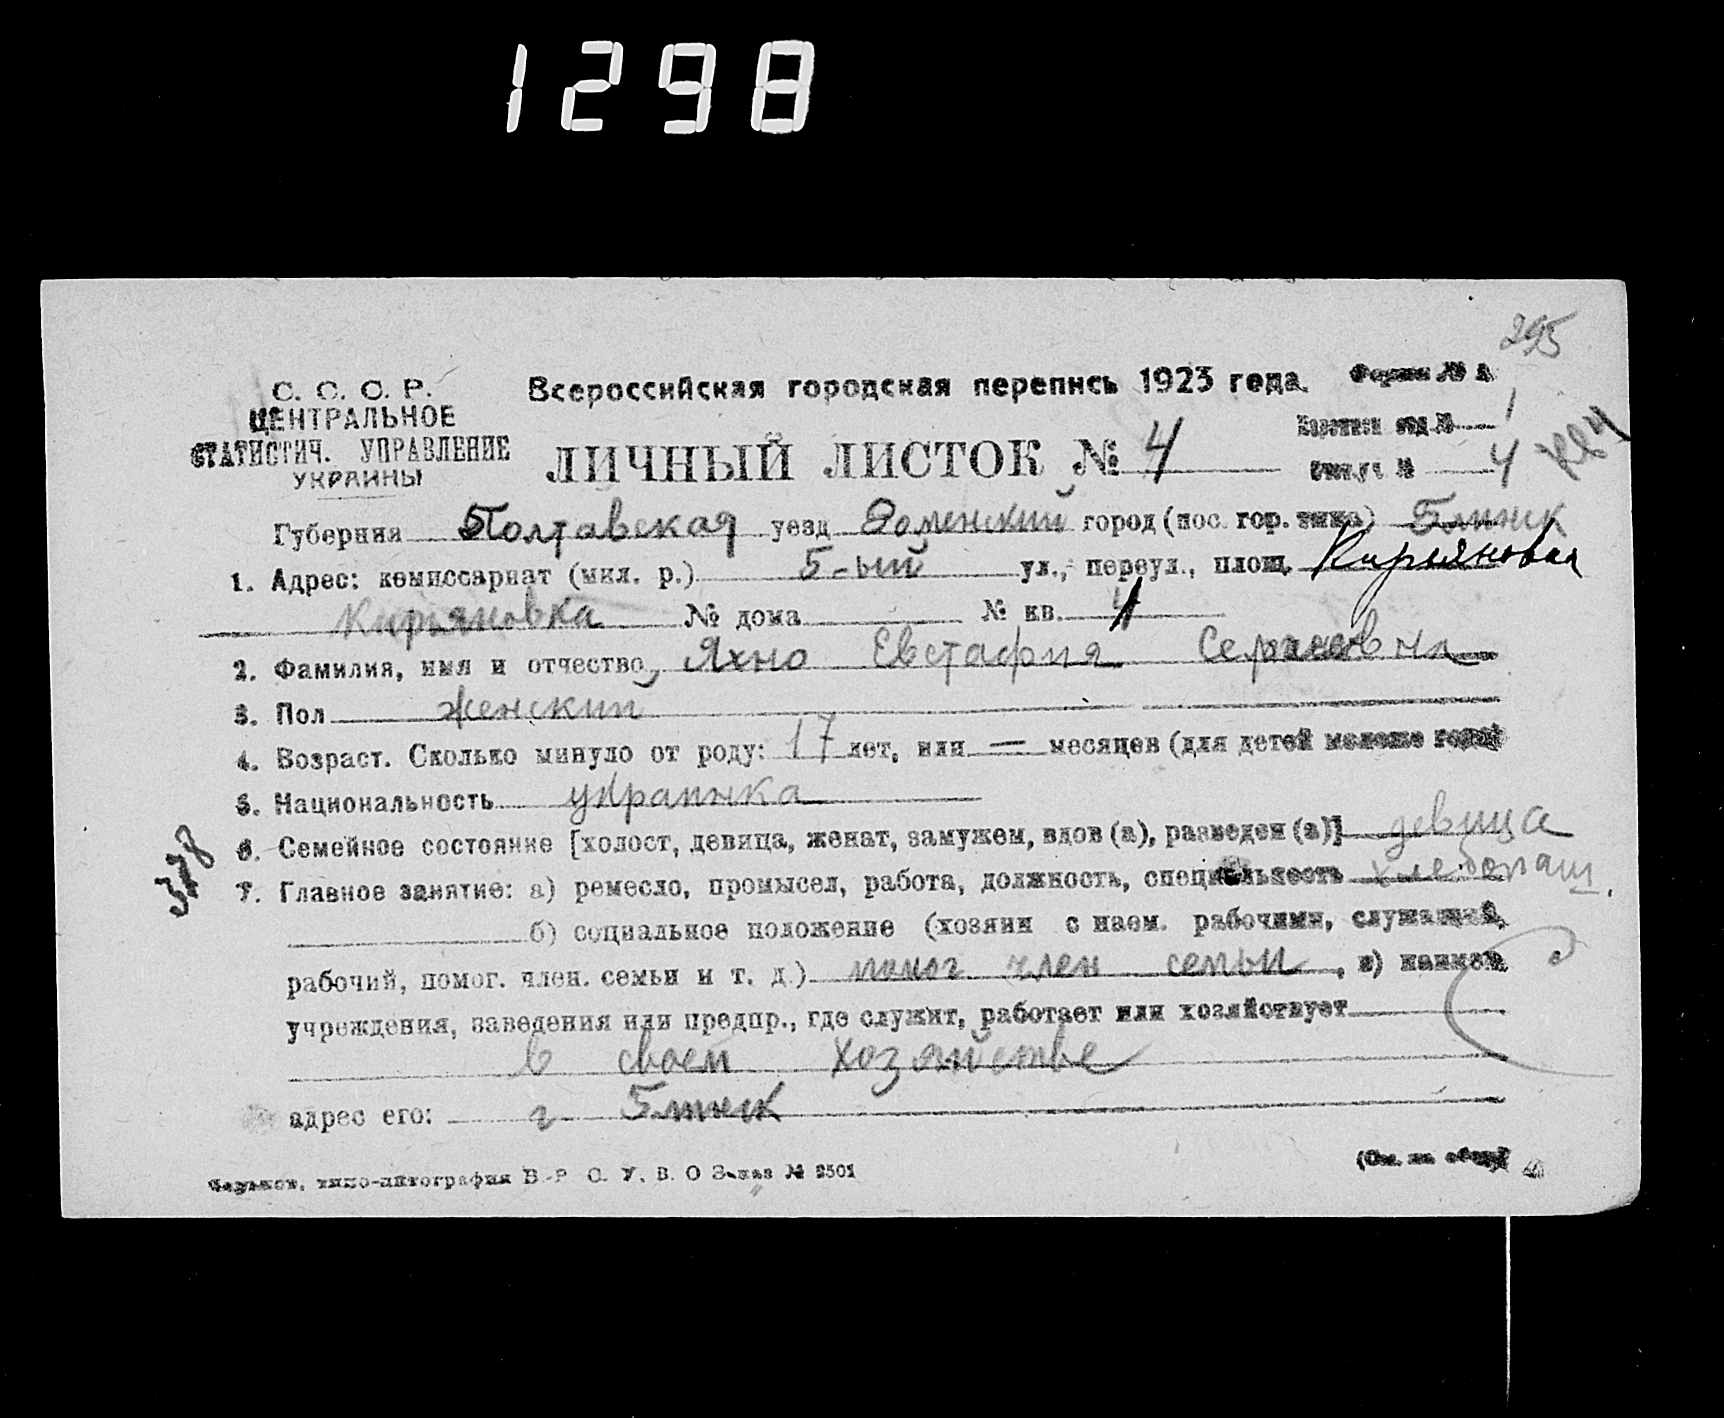 1298
295
С. С. С. Р.
ЦЕНТРАЛЬНОЕ
СТАТИСТИЧ. УПРАВЛЕНИЕ
УКРАИНЫ
Всероссийская городская перепись 1923 года.
Форма № А
ЛИЧНЫЙ ЛИСТОК № 4
1
4
Губерния Полтавская уезд Роменский город (пос. гор. типа) Глинск
1. Адрес: комиссариат (мил. р.) 5-ый ул., переул., площ. Кирьяновка
Кирьяновка № дома № кв.
2. Фамилия, имя и отчество, Яхно Евстафия
3. Пол женский
4. Возраст. Сколько минуло от роду: 17 лет, или — месяцев (для детей моложе года)
5. Национальность украинка
378
6. Семейное состояние [холост, девица, женат, замужем, вдов (а), разведен (а)] девица
7. Главное занятие: а) ремесло, промысел, работа, должность, специальность хлебопаш.
б) социальное положение (хозяин с наем. рабочими, служащий,
рабочий, помог. член. семьи и т. д.) помог член семьи, в) наимен.
учреждения, заведения или предпр., где служит, работает или хозяйствует
в своем хозяйстве
адрес его: г Глинск
Харьков, типо-литография В. Р. С. У. В. О Заказ № 2501
(См. на обор.)